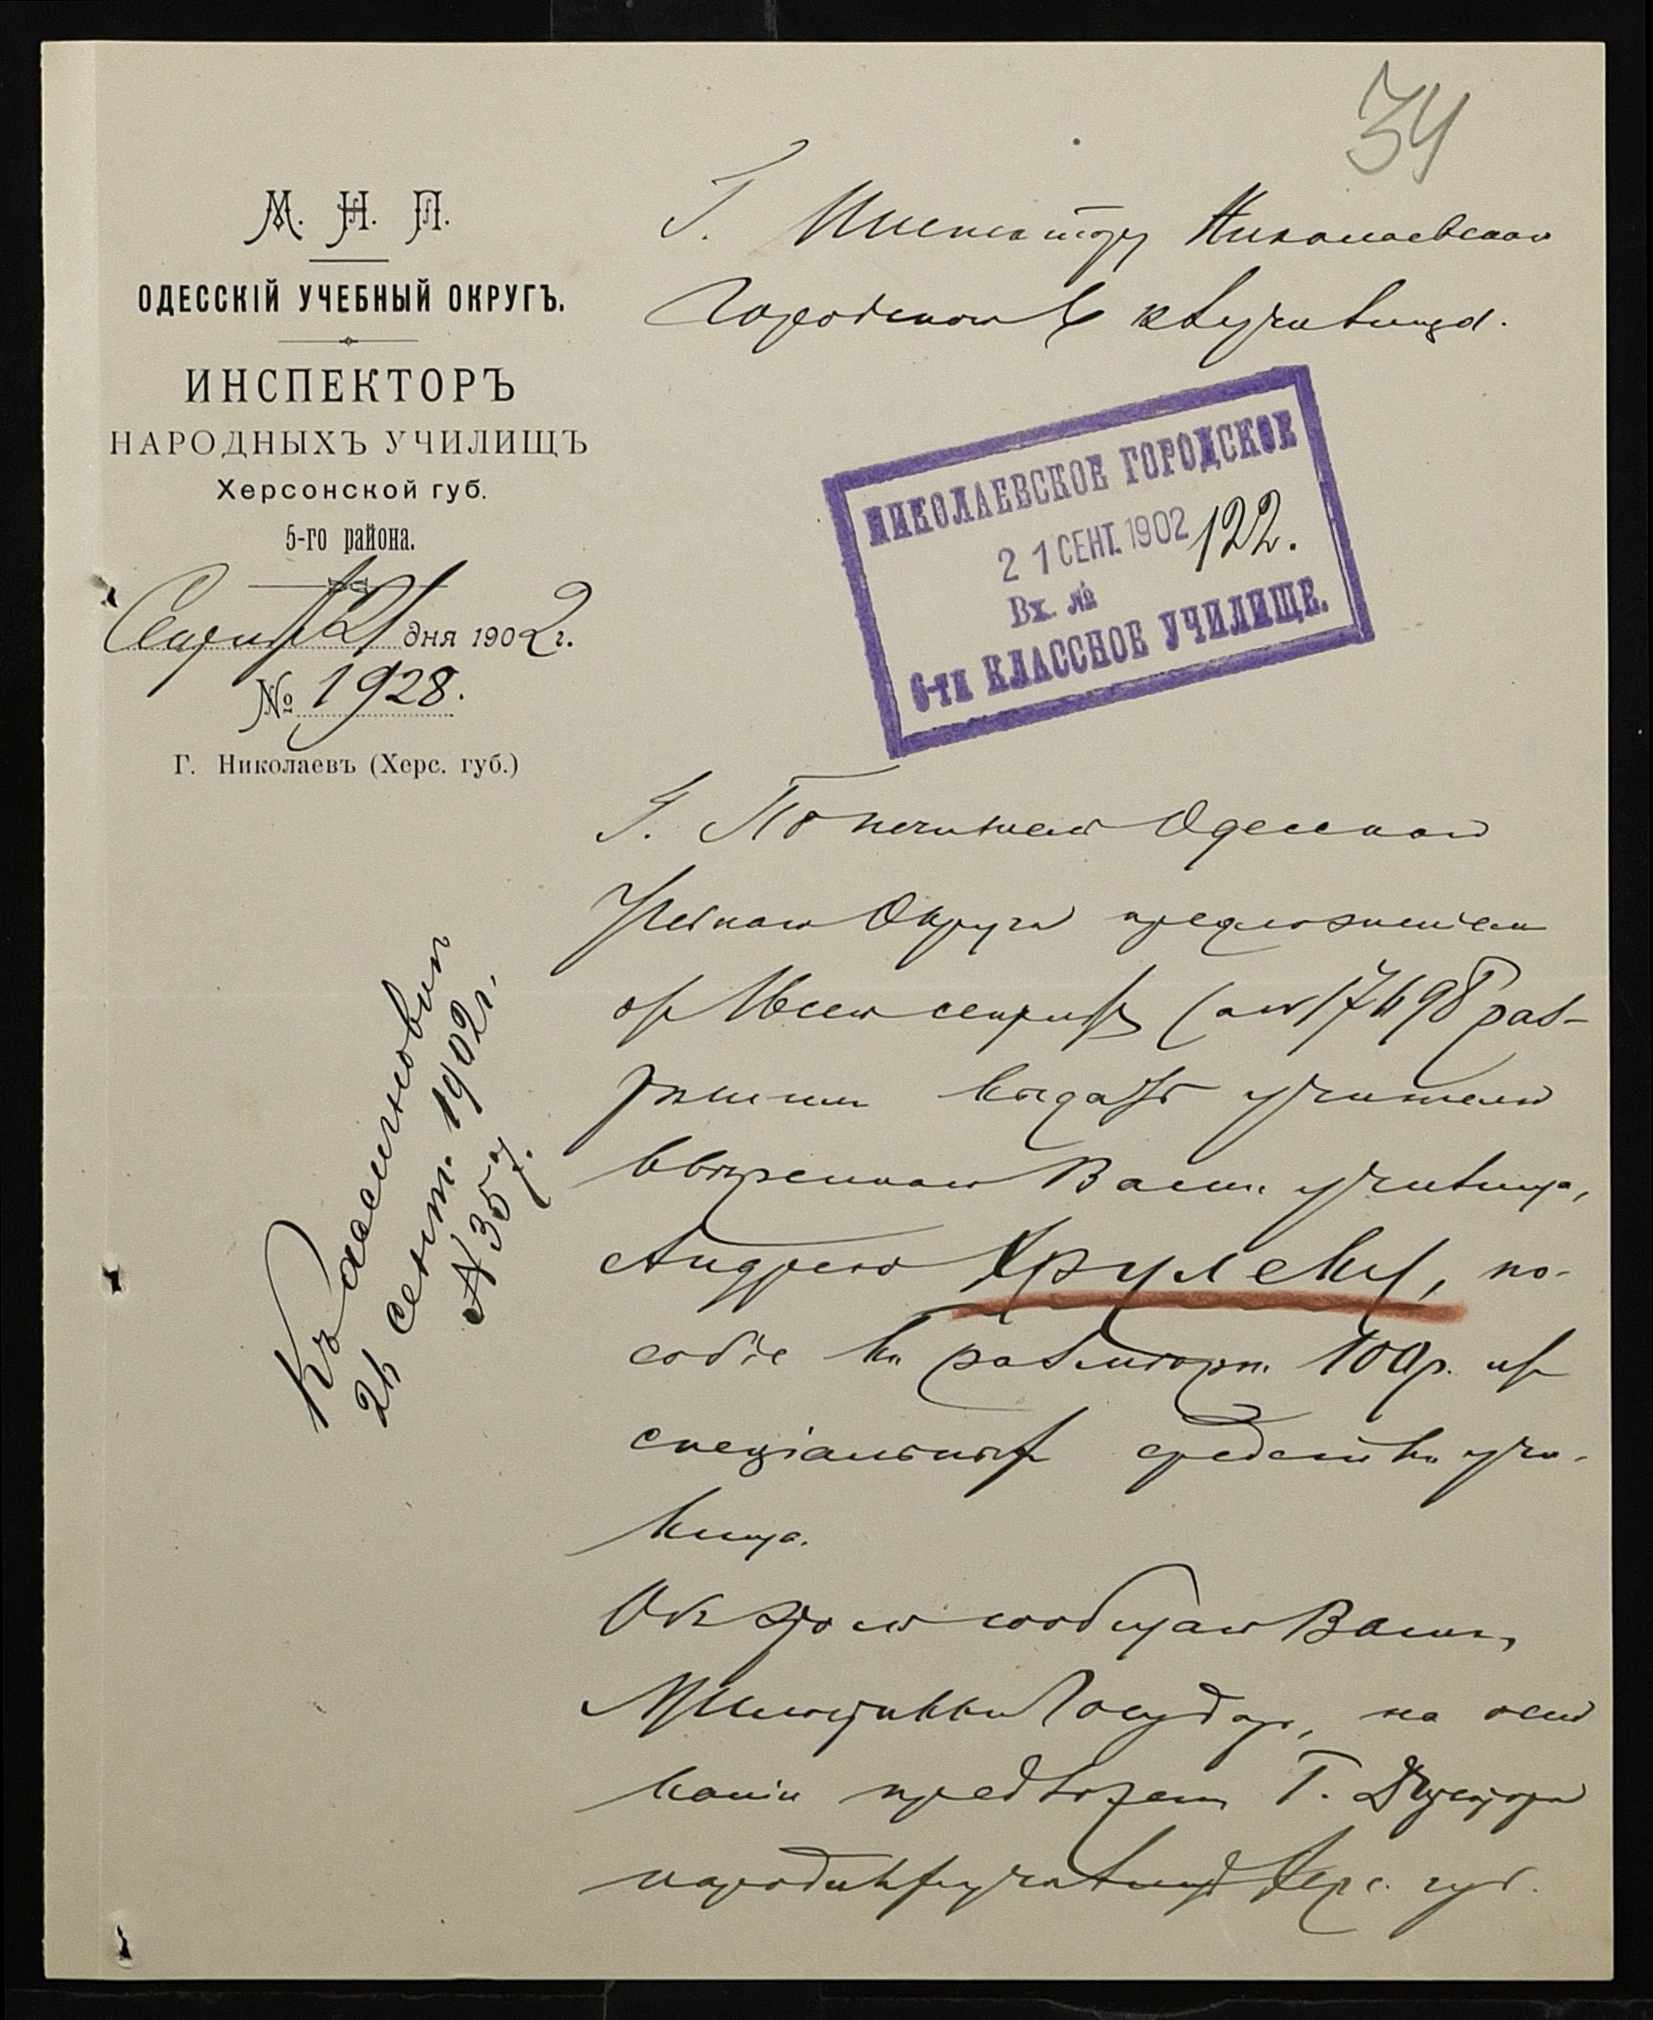 34
М. Н. П.
ОДЕССКІЙ УЧЕБНЫЙ ОКРУГЪ.
ИНСПЕКТОРЪ
НАРОДНЫХЪ УЧИЛИЩЪ
Херсонской губ.
5-го района.
Сентября 21 дня 1902 г.
№ 1928.
Г. Николаевъ (Херс. губ.)
Г. Инспектору Николаевскаго
Городского 6 кл училища.
НИКОЛАЕВСКОЕ ГОРОДСКОЕ
21 СЕНТ. 1902 122.
Вх. №
6-ти КЛАССНОЕ УЧИЛИЩЕ.
Г. Попечитель Одесскаго
Учебнаго Округа предложеніемъ
отъ сентября за № 17498 раз-
рѣшилъ выдать учителю
ввѣреннаго Вамъ училища,
Андрею Хрулеву, по-
собіе въ размѣрѣ 100 р. изъ
спеціальныхъ средствъ учи-
лища.
Объ этомъ сообщаю Вамъ,
Милостивый Государь, на осно
ваніи предложен. Г. Директора
народныхъ училищъ Херс. губ.
Къ ассигновкѣ
24 сент. 1902 г.
№ 357.